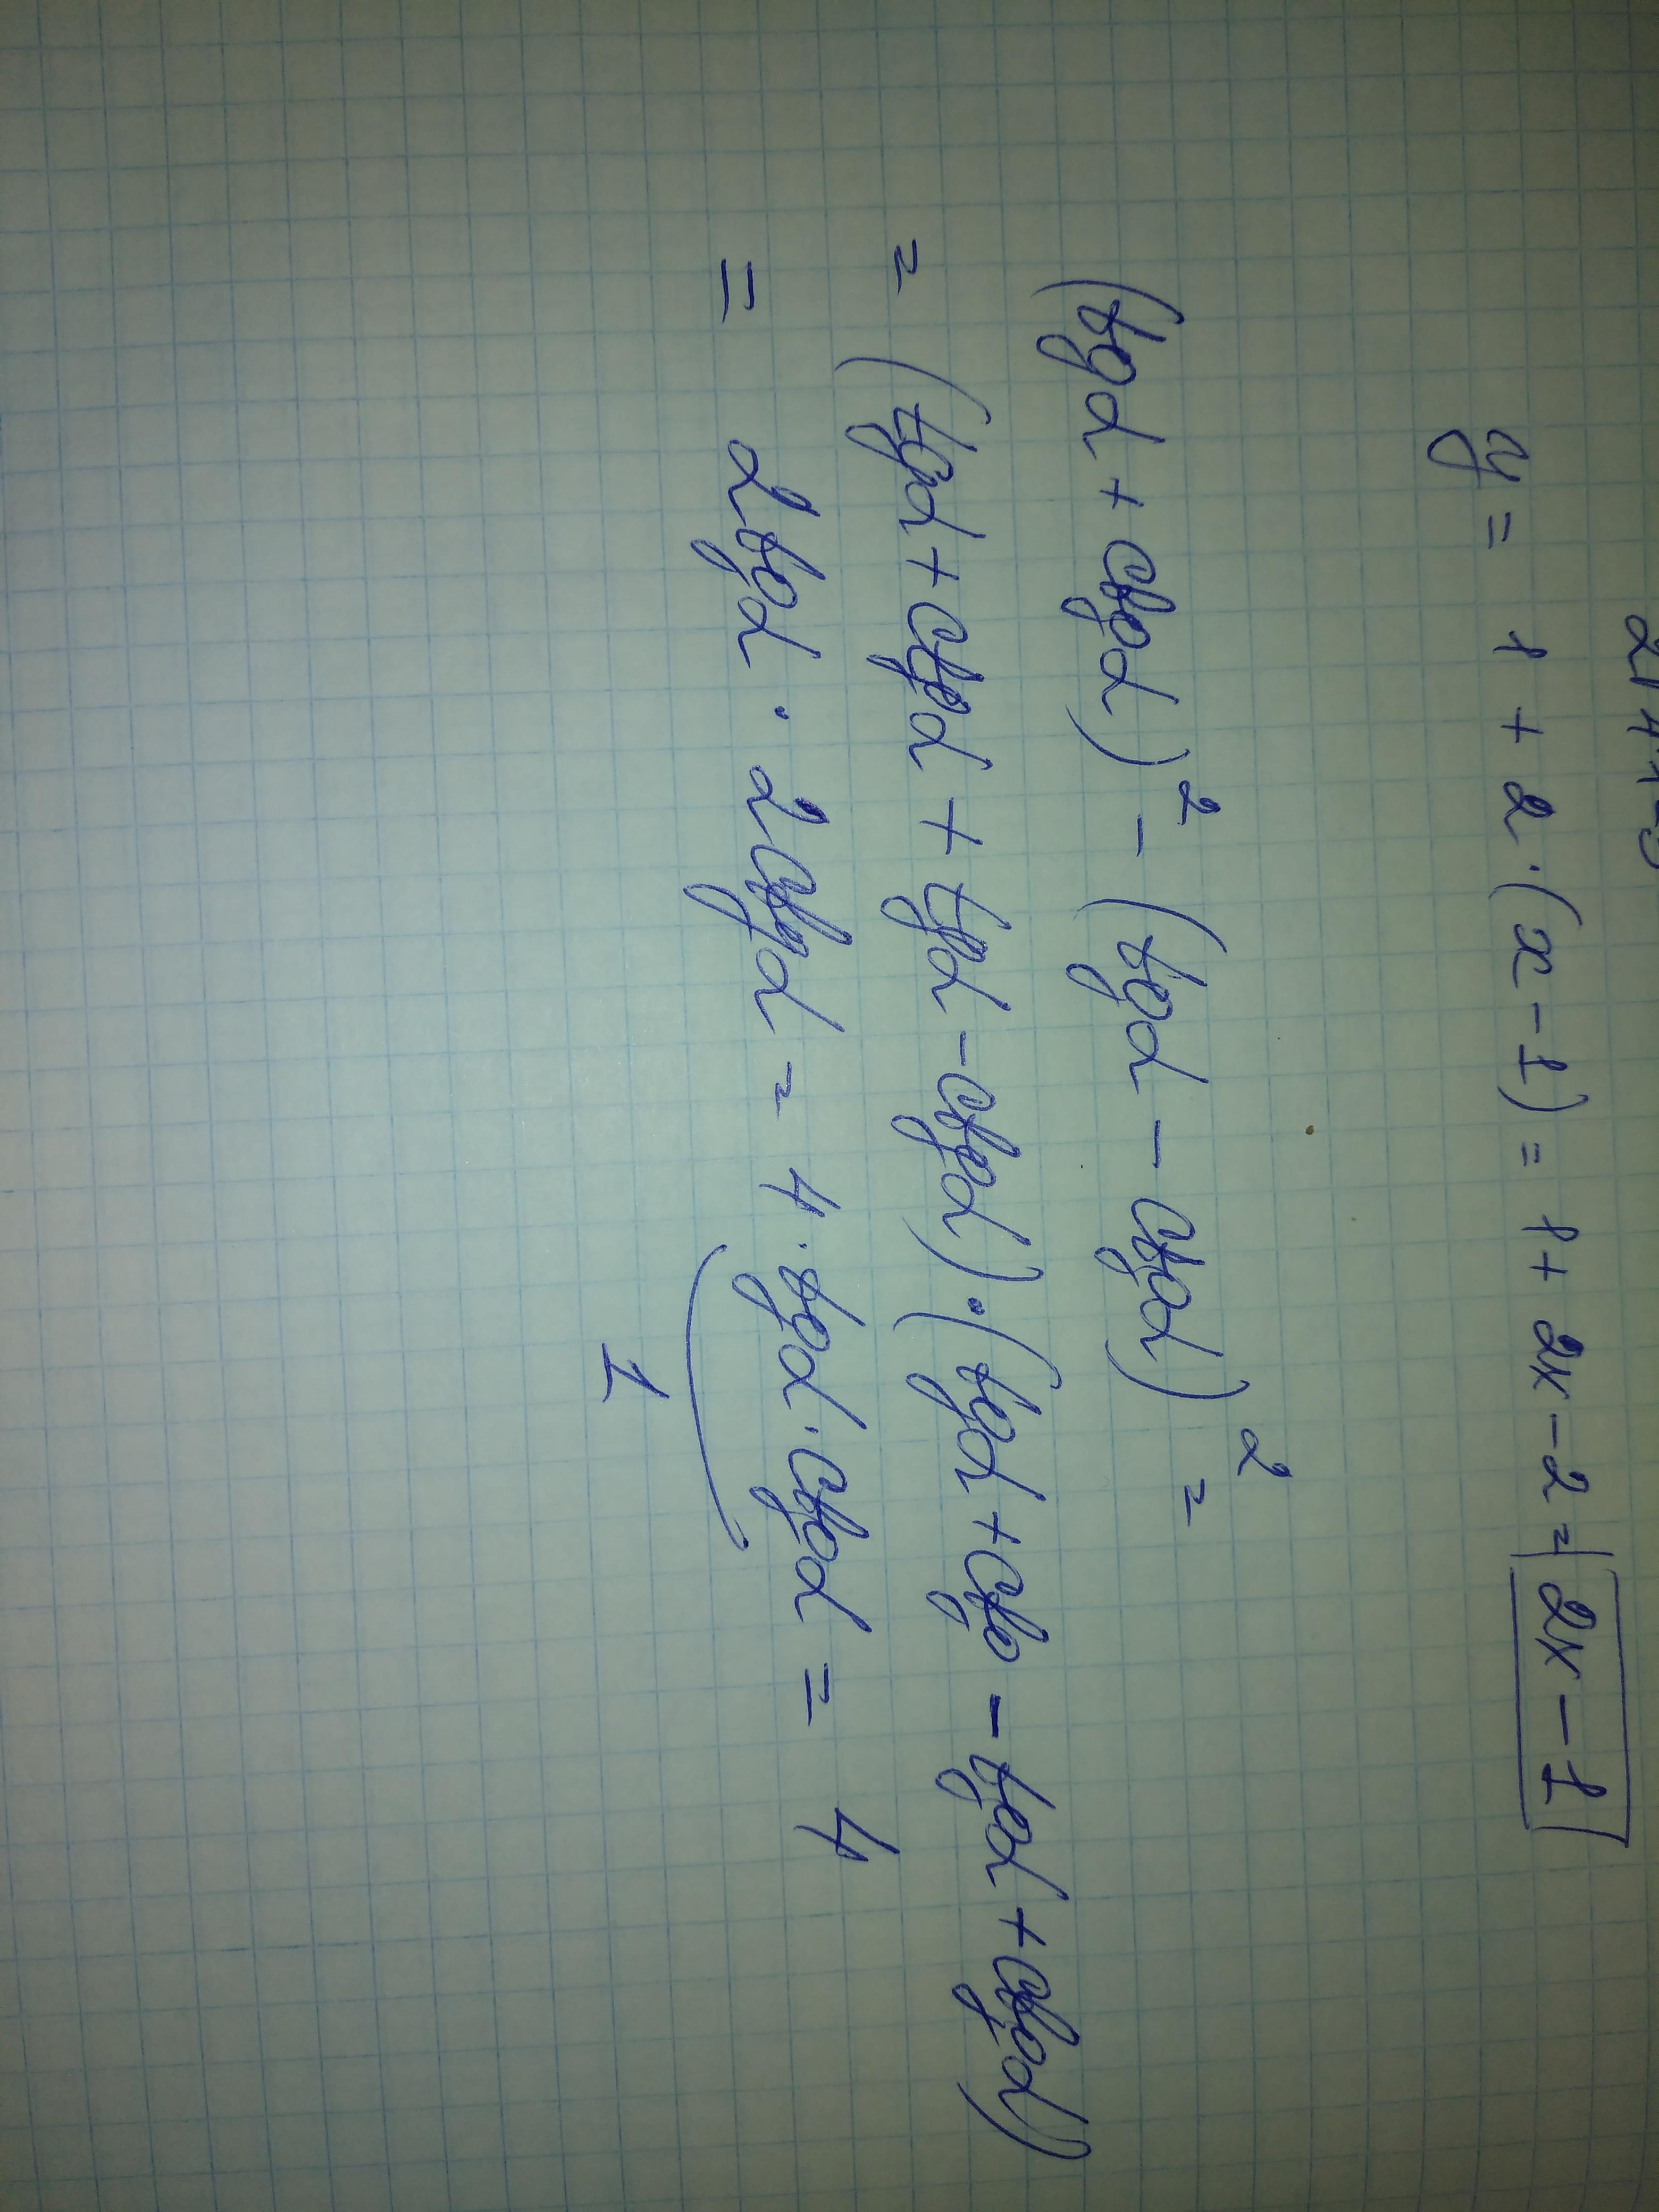 y = 1 + 2·(x-1) = 1 + 2x - 2 = 2x - 1
(tgα + ctgα)² - (tgα - ctgα)² =
= (tgα + ctgα + tgα - ctgα)·(tgα + ctg - tgα + ctgα)
= 2tgα · 2ctgα = 4·tgα·ctgα = 4
1